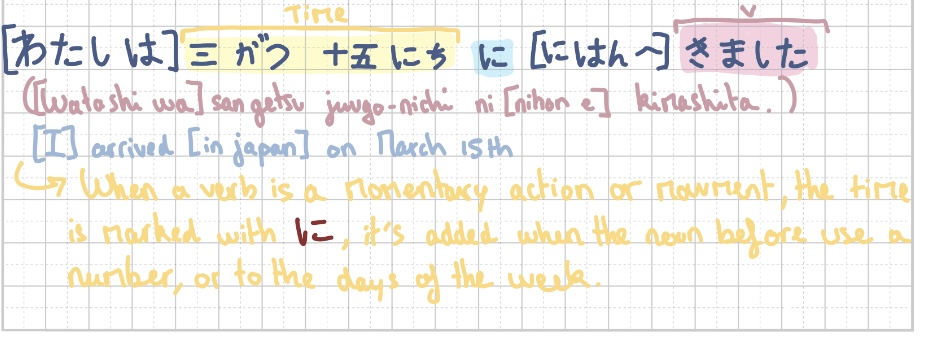 Time V
[わたしは] 三がつ 十五にち に [にほんへ] きました
([Watashi wa] sangatsu juugo-nichi ni [nihon e] kimashita.)
[I] arrived [in japan] on March 15th
When a verb is a momentary action or movment, the time
is marked with に, it's added when the noun before use a
number, or to the days of the week.